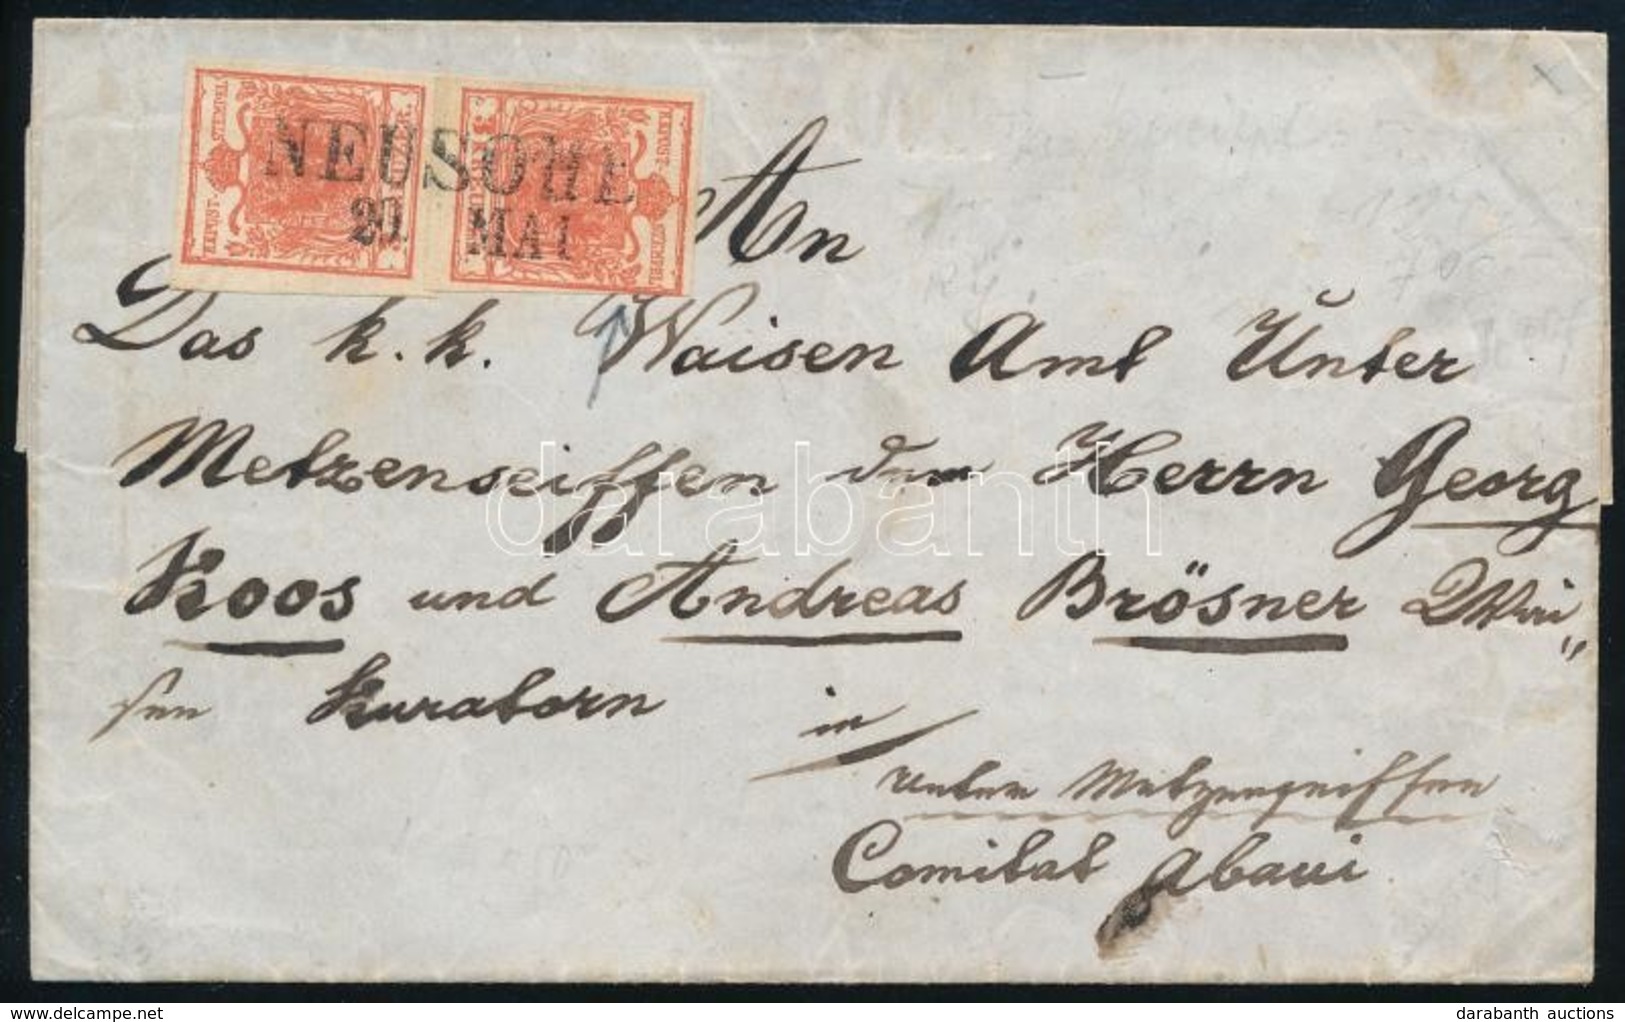 NEUSOHL
20. MAI
An
Das k. k. Waisen Amt Unter
Metzenseiffen den Herrn Georg
Koos und Andreas Brösner Wai„
sen Kuratorn in
unter Metzenseiffen
Comitat Abaui
darabanth
delcampe.net
darabanth auctions